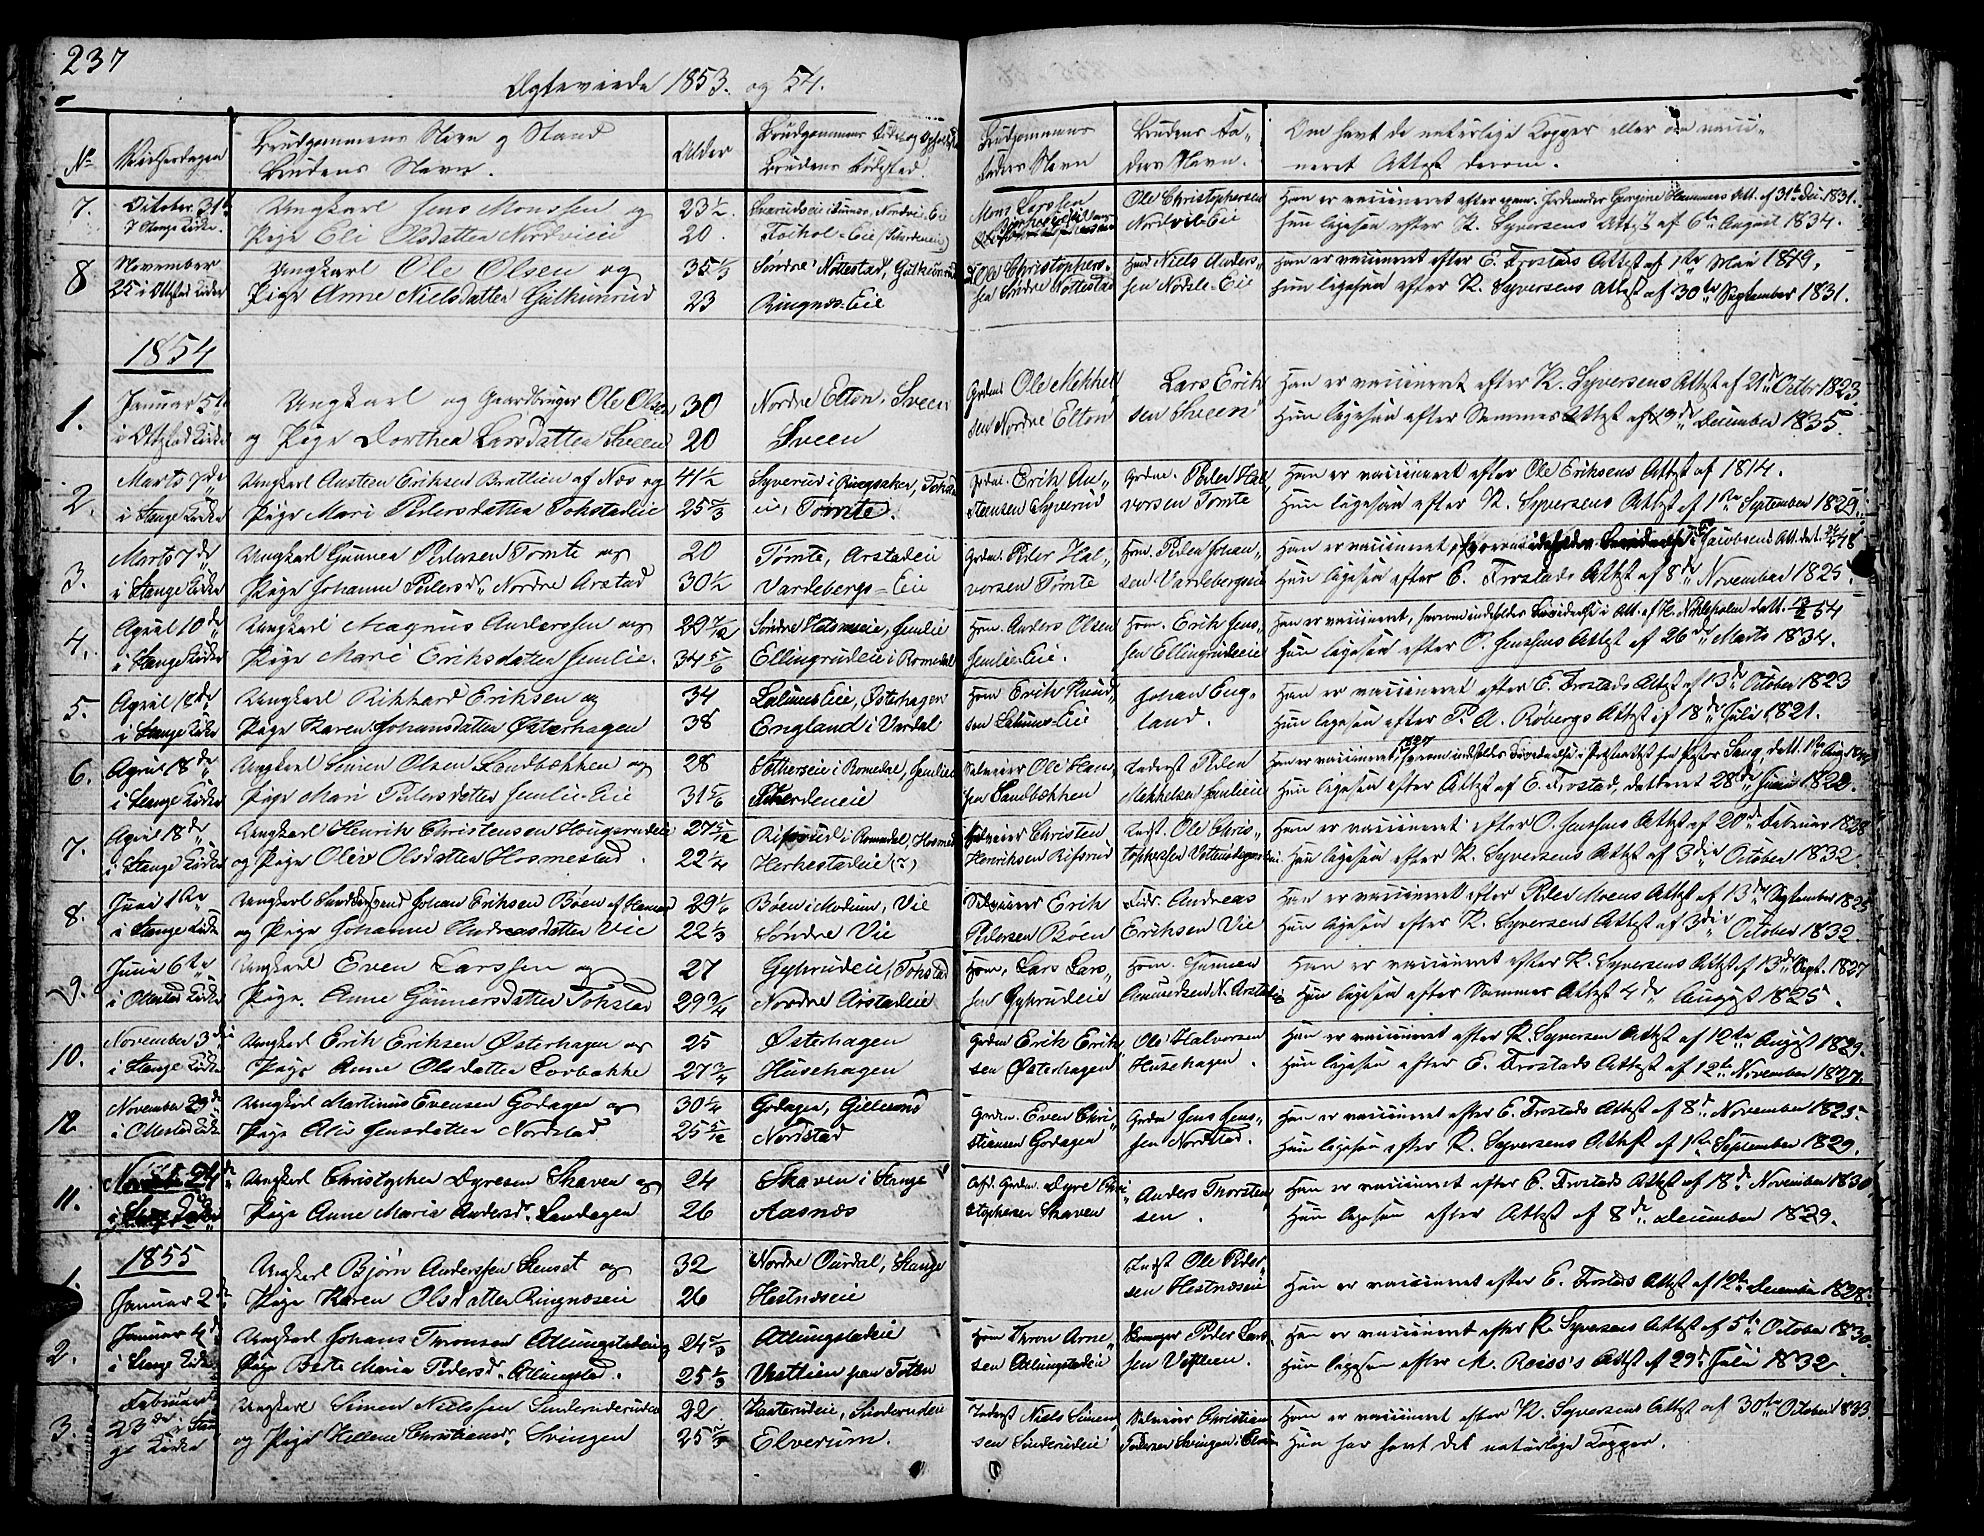 237
Ægteviede 1853. og 54.
No
Vielsesdagen
Brudgommens Navn og Stand
Brudens Navn.
Alder
Brudgommens Fødested og Opholdsst
Brudens Fødested.
Brudgommens
Faders Navn
Brudens Fa-
ders Navn.
Om havt de naturlige Kopper eller om vacci-
neret Attest derom.
7.
October 31te
i Stange Kirke
Ungkarl Jens Monssen og
Pige Eli Olsdatter Nordvieie
23½.
20.
Nordvie-Eie
Mons Larssen
Ole Christophersen
Nordvie-Eie
Han er vaccineret efter Att. af 31te Dec. 1831.
Hun ligesaa efter K. Syversens Attest af 6te August 1834.
8
November
25 i Ottestad Kirke
Ungkarl Ole Olsen og
Pige Anne Nielsdatter Gulkunrud
35⅓
23
Søndre Nøttestad, Gulkunrud
Ringnæs-Eie
Ole Christopher-
sen Søndre Nøttestad
Niels Anders-
sen Nordvie-Eie
Han er vaccineret efter E. Frostads Attest af 1ste Mai 1819.
Hun ligesaa efter K. Syversens Attest af 30te September 1831.
1854
1.
Januar 5te
i Ottestad Kirke
Ungkarl og Gaardbruger Ole Olsen
og Pige Dorthea Larsdatter Sveen
30
20
Nordre Elton, Sveen
Sveen
Grdm. Ole Mekkel
sen Nordre Elton
Lars Erik
sen Sveen
Han er vaccineret efter K. Syversens Attest af 21de Octbr 1823.
Hun ligesaa efter Sammes Attest af 19de December 1835.
2.
Marts 7de
i Stange Kirke
Ungkarl Austen Eriksen Brattlien af Næs og
Pige Mari Pedersdatter Tokstadeie
41½
25⅔
Syverud i Ringsaker, Tokstad
eie, Tomte.
Grdm. Erik Au-
stensen Syverud
Grdm. Peder Hal
vorsen Tomte
Han er vaccineret efter Ole Eriksens Attest af 1814.
Hun ligesaa efter K. Syversens Attest af 1ste September 1829.
3.
Marts 7de
i Stange Kirke
Ungkarl Gunner Pedersen Tomte og
Pige Johanne Pedersdr. Nordre Arstad
20
30½
Tomte, Arstadeie
Vardebergs-Eie
Grdm. Peder Hal-
vorsen Tomte
Hsm. Peder Johan-
sen Vardebergseie
Han er vaccineret, Jacobsens Att. dat. 48
Hun ligesaa efter E. Frostads Attest af 8de November 1825.
4.
April 10de
i Stange Kirke
Ungkarl Magnus Anderssen og
Pige Mari Eriksdatter Jemlie.
29 7/12
34 5/6
Jemlie
Ellingrudeie i Romedal
Hsm. Anders Olsen
Jemlie-Eie.
Hsm. Erik Jens-
sen Ellingrudeie
Han er vaccineret, 54
Hun ligesaa efter O. Jensens Attest af 26de Marts 1834.
5.
April 18de
i Stange Kirke
Ungkarl Rikkard Eriksen og
Pige Karen Johansdatter Østerhagen
34
38
Lalums Eie, Østerhagen
England i Vardal
Hsm Erik Knud
sen Lalums-Eie
Johan Eng-
land.
Han er vaccineret efter E. Frostads Attest af 13de October 1823
Hun ligesaa efter P. A. Røbergs Attest af 18de Juli 1821.
6.
April 18de
i Stange Kirke
Ungkarl Simen Olsen Sandbakken og
Pige Mari Pedersdatter Jemlie-Eie
28
31 5/6
i Romedal, Jemlie
Selveier Ole Han-
sen Sandbakken
Inderst Peder
Mekkelsen Jemlieeie
Han er vaccineret 1827
Hun ligesaa efter Attest af E. Frostad, datteret 28de Juni 1822.
7.
April 18de
i Stange Kirke
Ungkarl Henrik Christensen Hougsrudeie
og Pige Oliv Olsdatter Hosmestad.
27 5/12
22¼
Rifsrud i Romedal, Hosmed
Herkestadeie (?)
Selveier Christen
Henriksen Rifsrud
Indst. Ole Chris-
tophersen
Han er vaccineret efter O. Jensens Attest af 20de Februar 1828
Hun ligesaa efter K. Syversens Attest af 3die October 1832.
8.
Juni 1ste
i Stange Kirke
Ungkarl Johan Eriksen Bøen af Hamar
og Pige Johanne Andreasdatter Vie
29 1/6
22⅓
Bøen i Modum, Vie
Søndre Vie
Selveier Erik
Pedersen Bøen
Andreas
Eriksen Vie
Han er vaccineret efter Peder Moens Attest af 13de September 1825
Hun ligesaa efter K. Syversens Attest af 3die October 1832.
9.
Juni 6te
i Ottestad Kirke
Ungkarl Even Larssen og
Pige Anne Gunnersdatter Tokstad
27
29¾
Gyhrudeie, Tokstad
Nordre Arstadeie
Hsm. Lars Lars-
sen Gyhrudeie
Hsm. Gunner
Amundsen N. Arstadeie
Han er vaccineret efter K. Syversens Attest af 13de Sept. 1827
Hun ligesaa efter Sammes Attest 4de August 1825.
10.
November 3die
i Stange Kirke
Ungkarl Erik Eriksen Østerhagen og
Pige Anne Olsdatter Lorbakke
25
27¾
Østerhagen
Husehagen
Grdm Erik Erik
sen Østerhagen
Ole Halvorsen
Husehagen.
Han er vaccineret efter K. Syversen Attest af 10de August 1829.
Hun ligesaa efter E. Frostads Attest af 12te November 1827.
12
November 29de
i Ottestad Kirke
Ungkarl Martinus Evensen Godager og
Pige Oliv Jensdatter Nordstad
30¼
25 5/12
Godager, Gillerud
Nordstad
Grdm. Even Chri-
stiansen Godager
Grdm Jens Jens-
sen Nordstad.
Han er vaccineret efter E. Frostads Attest af 8de November 1825.
Hun ligesaa efter K. Syversens Attest af 1ste September 1829.
11.
24de
Ungkarl Christopher Dyresen Skaven og
Pige Anne Maria Andersdr. Sandager
24
26
Skaven i Stange
Aasnæs
Afd. Grdm. Dyre Chri
stophersen Skaven
Anders Thorsten
sen.
Han er vaccineret efter E. Frostads Attest af 18de November 1830.
Hun ligesaa efter Attest af 8de December 1829.
1855
1.
Januar 2den
Ungkarl Bjørn Anderssen og
Pige Karen Olsdatter Ringnæseie
32
26
Nordre Ourdal, Stange
Hestnæseie
Indst Ole Peder-
sen Hestnæseie
Han er vaccineret efter E. Frostads Attest af 12te December 1828.
2.
Januar 4de
i Stange Kirke
Ungkarl Johans Thronsen Atlungstadeie og
Pige Berte Maria Pedersdr. Atlungstad.
24⅔
25⅓
Atlungstadeie
Vestlien paa Toten
Hsm Thron Arne
sen Atlungstadeie
Peder Lars-
sen Vestlien.
Han er vaccineret efter K. Syversens Attest af 5te October 1830.
Hun ligesaa efter M. Reiss's Attest af 29de Juli 1832.
3.
Februar
23de i Stan-
ge Kirke
Ungkarl Simen Nielssen Sinderudeie
og Pige Hellene Christiansdr. Svingen
22
25
Sinderudeie
Elverum.
Inderst Niels Simen
sen Sinderudeie
Selveier Christian
Pedersen Svingen i Elver
Han er vaccineret efter K. Syversens Attest af 30te October 1833
Hun har havt de naturlige Kopper.